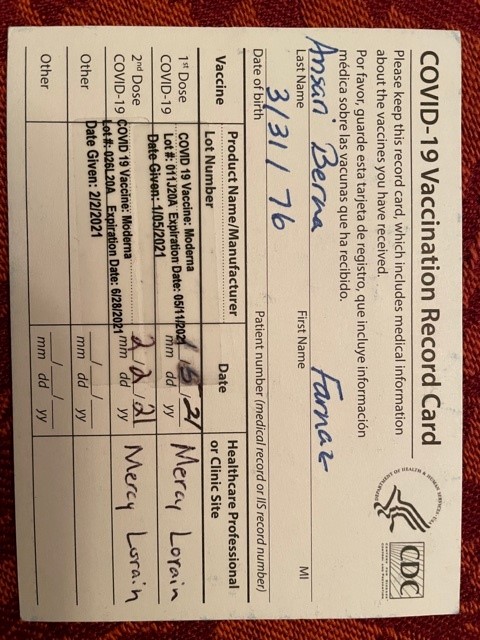 COVID-19 Vaccination Record Card
Please keep this record card, which includes medical information
about the vaccines you have received.
Por favor, guarde esta tarjeta de registro, que incluye información
médica sobre las vacunas que ha recibido.
DEPARTMENT OF HEALTH & HUMAN SERVICES USA
CDC
CENTERS FOR DISEASE
CONTROL AND PREVENTION
Ansari Berna Farnaz
Last Name First Name MI
3/31/76
Date of birth Patient number (medical record or IIS record number)
Vaccine Product Name/Manufacturer Date Healthcare Professional
Lot Number or Clinic Site
1st Dose COVID 19 Vaccine: Moderna
COVID-19 Lot #: 011J20A Expiration Date: 05/11/2021 1/5/21 Mercy Lorain
Date Given: 1/05/2021 mm dd yy
2nd Dose COVID 19 Vaccine: Moderna
COVID-19 Lot #: 026L20A Expiration Date: 6/28/2021 2/2/21 Mercy Lorain
Date Given: 2/2/2021 mm dd yy
Other __/__/__
mm dd yy
Other __/__/__
mm dd yy